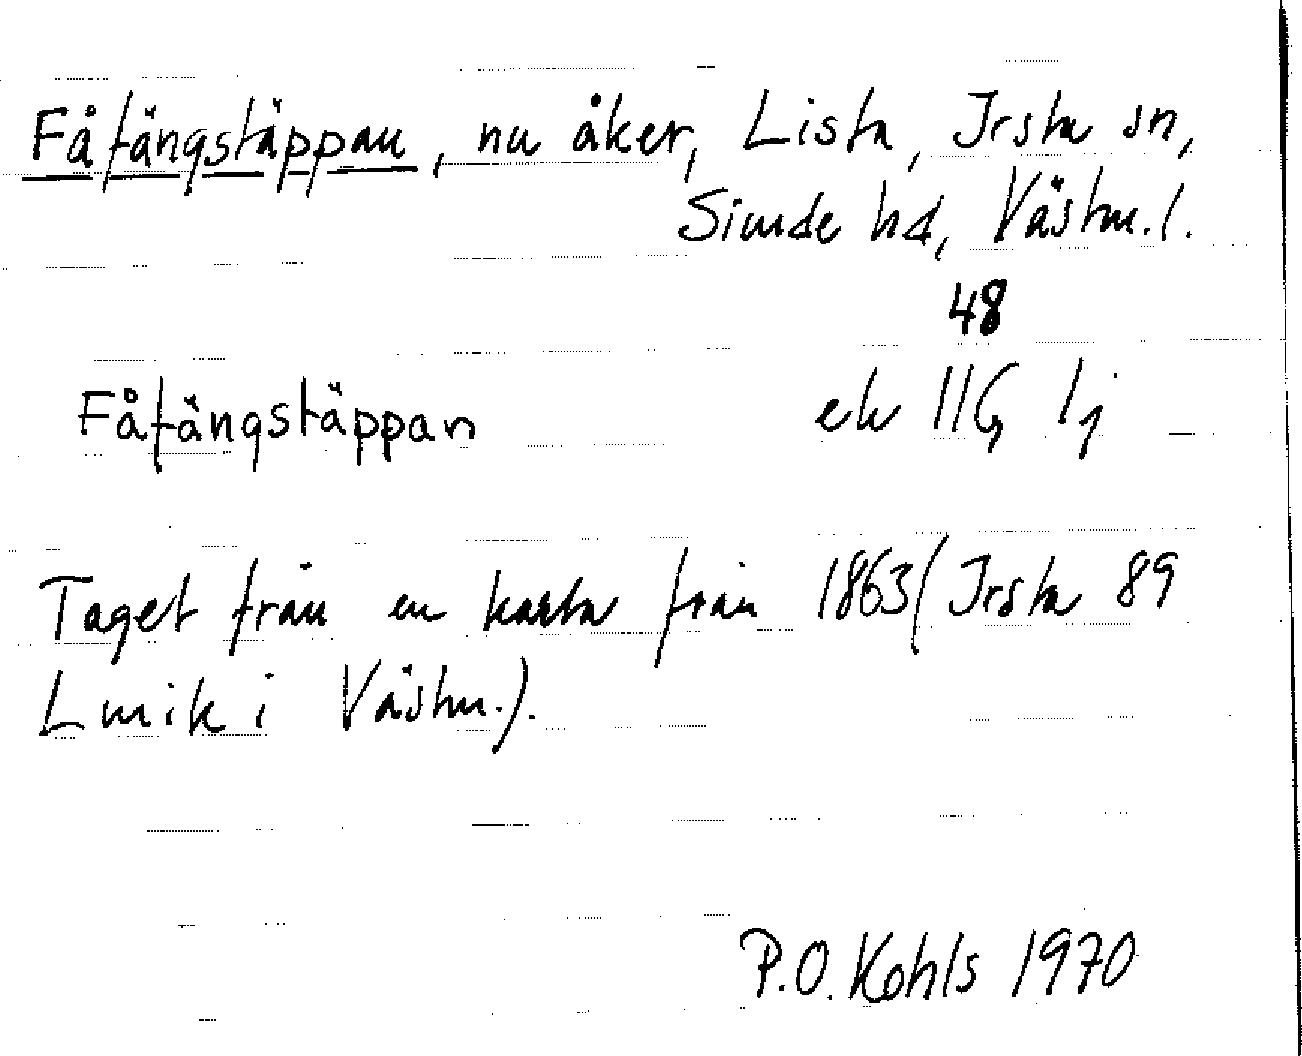 Fåfängstäppan, nu åker, Lista, Irsta sn,
Siende hd, Västm. l.
48
Fåfängstäppan ek 11G 1j
Taget från en karta från 1863 (Irsta 89
Lmik i Västm.).
P.O. Kohls 1970